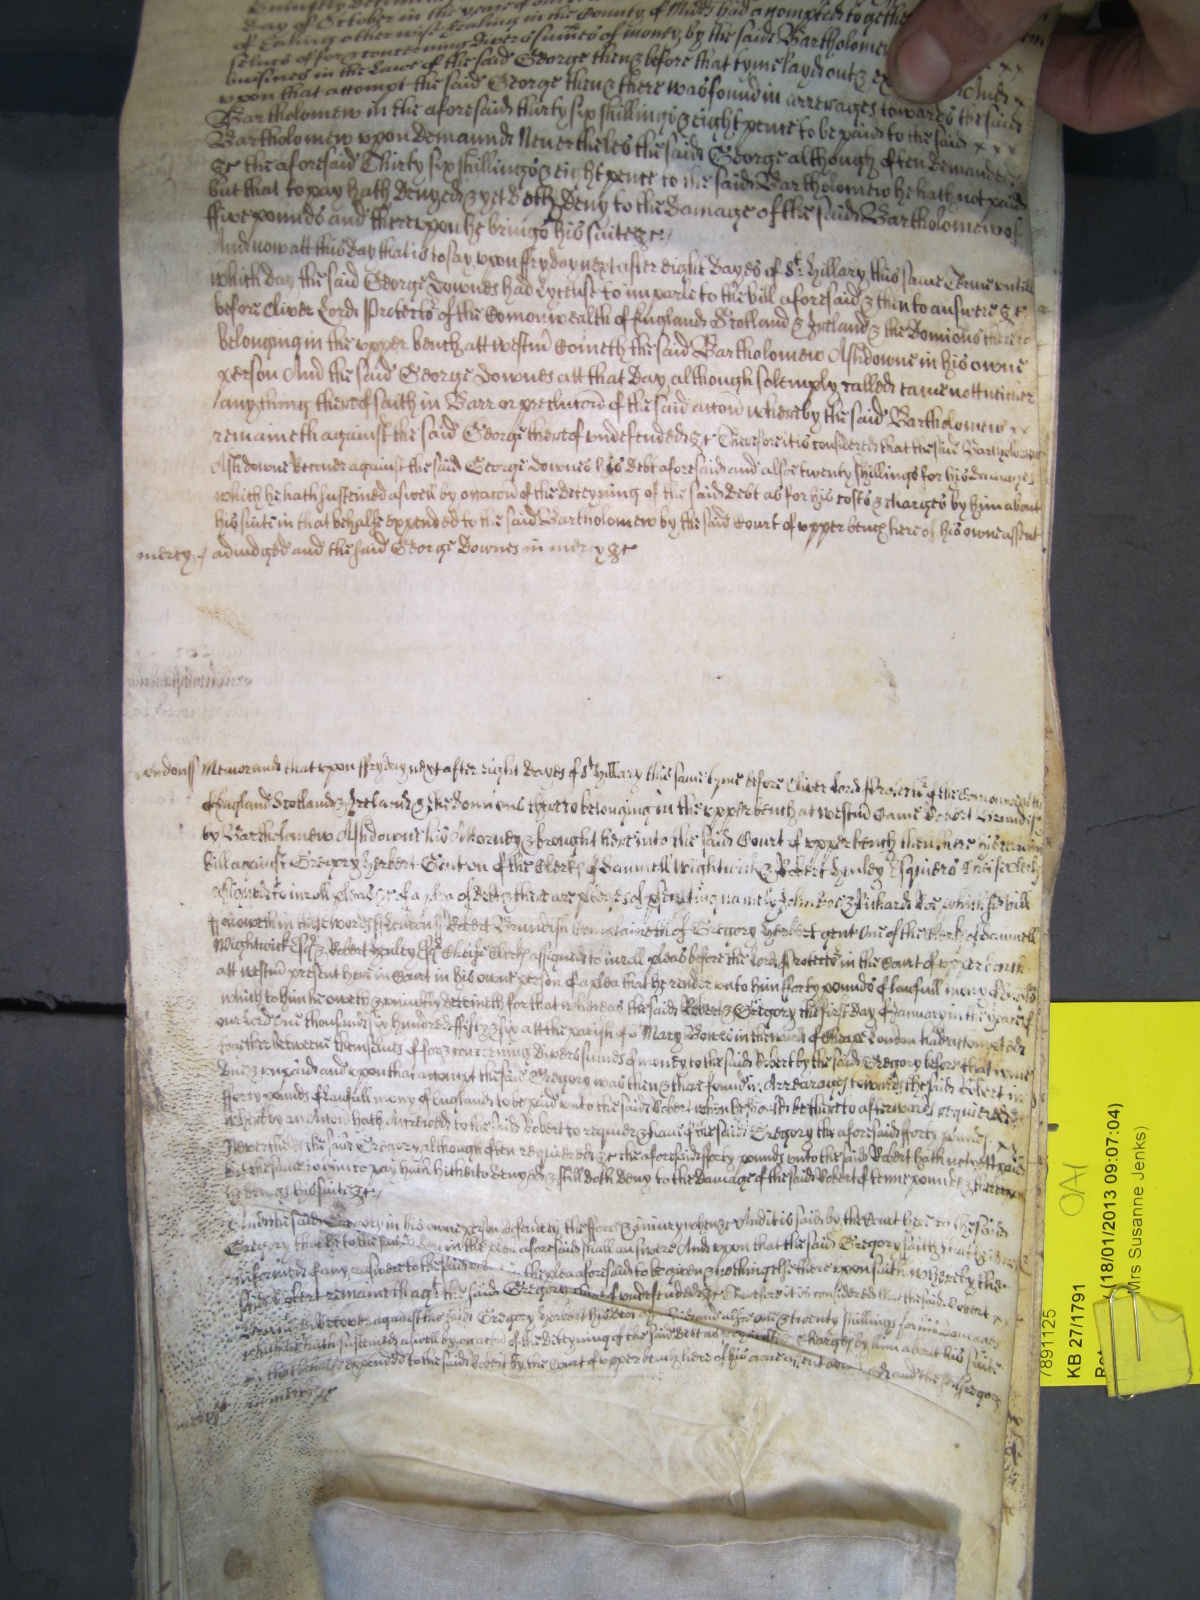 day of October in the yeare of
of Ealing otherwise Yealing in the County of Midds had accompted togethe
selves of & concerning divers summes of money by the said Bartholomew
busines in the Lawe of the said George then & before that tyme layd out & ex
upon that accompt the said George then & there was found in arrerages towards the said
Bartholomew in the aforesaid thirty six shillings & eight pence to be paid to the said x x x
Bartholomew upon demaund Neverthelesse the said George although often demanded
&c the aforesaid Thirty six shillings & eight pence to the said Bartholomew he hath not paid
but that to pay hath denyed & yet doth deny to the damage of the said Bartholomew of
ffive pounds and thereupon he brings his suite &c
And now att this day that is to say upon ffryday next after eight dayes of St. Hillary this same Terme untill
which day the said George Downes had lycense to imparle to the bill aforesaid & then to answere &c
before Oliver Lord Protector of the Comonwealth of England Scotland & Ireland & the Dominions thereto
belonging in the upper bench att westm cometh the said Bartholomew Ashdowne in his owne
person And the said George Downes att that day although solemply called came nott neither
any thing thereof saith in Barr or preclucon of the said accon whereby the said Bartholomew x x
remaineth against the said George thereof undefended &c Therefore it is considered that the said Bartholomew
Ashdowne Recover against the said George Downes his debt aforesaid and alsoe twenty shillings for his damages
which he hath susteined aswell by occacon of the deteyning of the said debt as for his costs & charges by him about
his suite in that behalfe expended to the said Bartholomew by the said Court of upper bench here of his owne assent
mercy adiudged and the said George Downes in mercy &c
London ss Memorand that upon ffryday next after eight dayes of St Hillary this same tyme before Oliver Lord Protector of the Comonwealth
England Scotland & Ireland & the dominions thereto belonging in the upper bench at westm Came Robert Brundish
by Bartholomew Ashdowne his Attorney & brought here into the said Court of upper bench then there his certaine
bill against Gregory Herbert Gent on of the Clerks of Samuell Wightwick & Robert Henley Esquiers Cheife Clerk
assigned to inroll pleas &c of a plea of debt & there are pledges of prosecuting namely John Doe & Richard Roe which said bill
followeth in these words ss London ss Robert Brundish complaineth of Gregory Herbert gent One of the Clerks of Samuell
Wightwick Esqr & Robert Henley Esqr Cheife Clerk assigned to inroll pleas before the Lord Protector in the Court of upper bench
att westm present here in Court in his owne person of a plea that he render unto him fforty pounds of lawfull mony of England
which to him he oweth & uniustly deteineth for that whereas the said Robert & Gregory the first day of January in the yeare of
our Lord One thousand six hundred ffifty & six att the parish of St Mary Bowe in the ward of Cheape London had accompted
together betweene themselves of & concerning divers summes of money to the said Robert by the said Gregory before that tyme
due & unpaid and upon that accompt the said Gregory was then & there found in Arrearages towards the said Robert in
fforty pounds of lawfull mony of England to be paid unto the said Robert when he should be thereto afterwards required
whereby an Accon hath Accrewed to the said Robert to require & have of the said Gregory the aforesaid forty pounds x x
Neverthelesse the said Gregory although often required &c the aforesaid forty pounds unto the said Robert hath not yett paid
but the same to him to pay hath hitherto denyed & still doth deny to the damage of the said Robert of tenne pounds & thereupon
he brings his suite &c
And the said Gregory in his owne person defendeth the fforce & iniury when &c And it is said by the Court here to the said
Gregory that he to the said Robert in the plea aforesaid shall answere And upon that the said Gregory saith that he is not
informed of any answere to the said in the plea aforesaid to be given & nothing else thereupon saith whereby the
said Robert remaineth agt the said Gregory thereof undefended &c Therefore it is considered that the said Robert x
Recover against the said Gregory Herbert his debt and alsoe one & twenty shillings for his damages
which he hath susteined aswell by occacon of the deteyning of the said debt as charges by him about his suite
in that behalfe expended to the said Robert by the Court of upper bench here of his owne assent and the said Gregory
mercy in mercy &c
7891125
KB 27/1791
(18/01/2013 09:07:04)
Mrs Susanne Jenks)
OA1